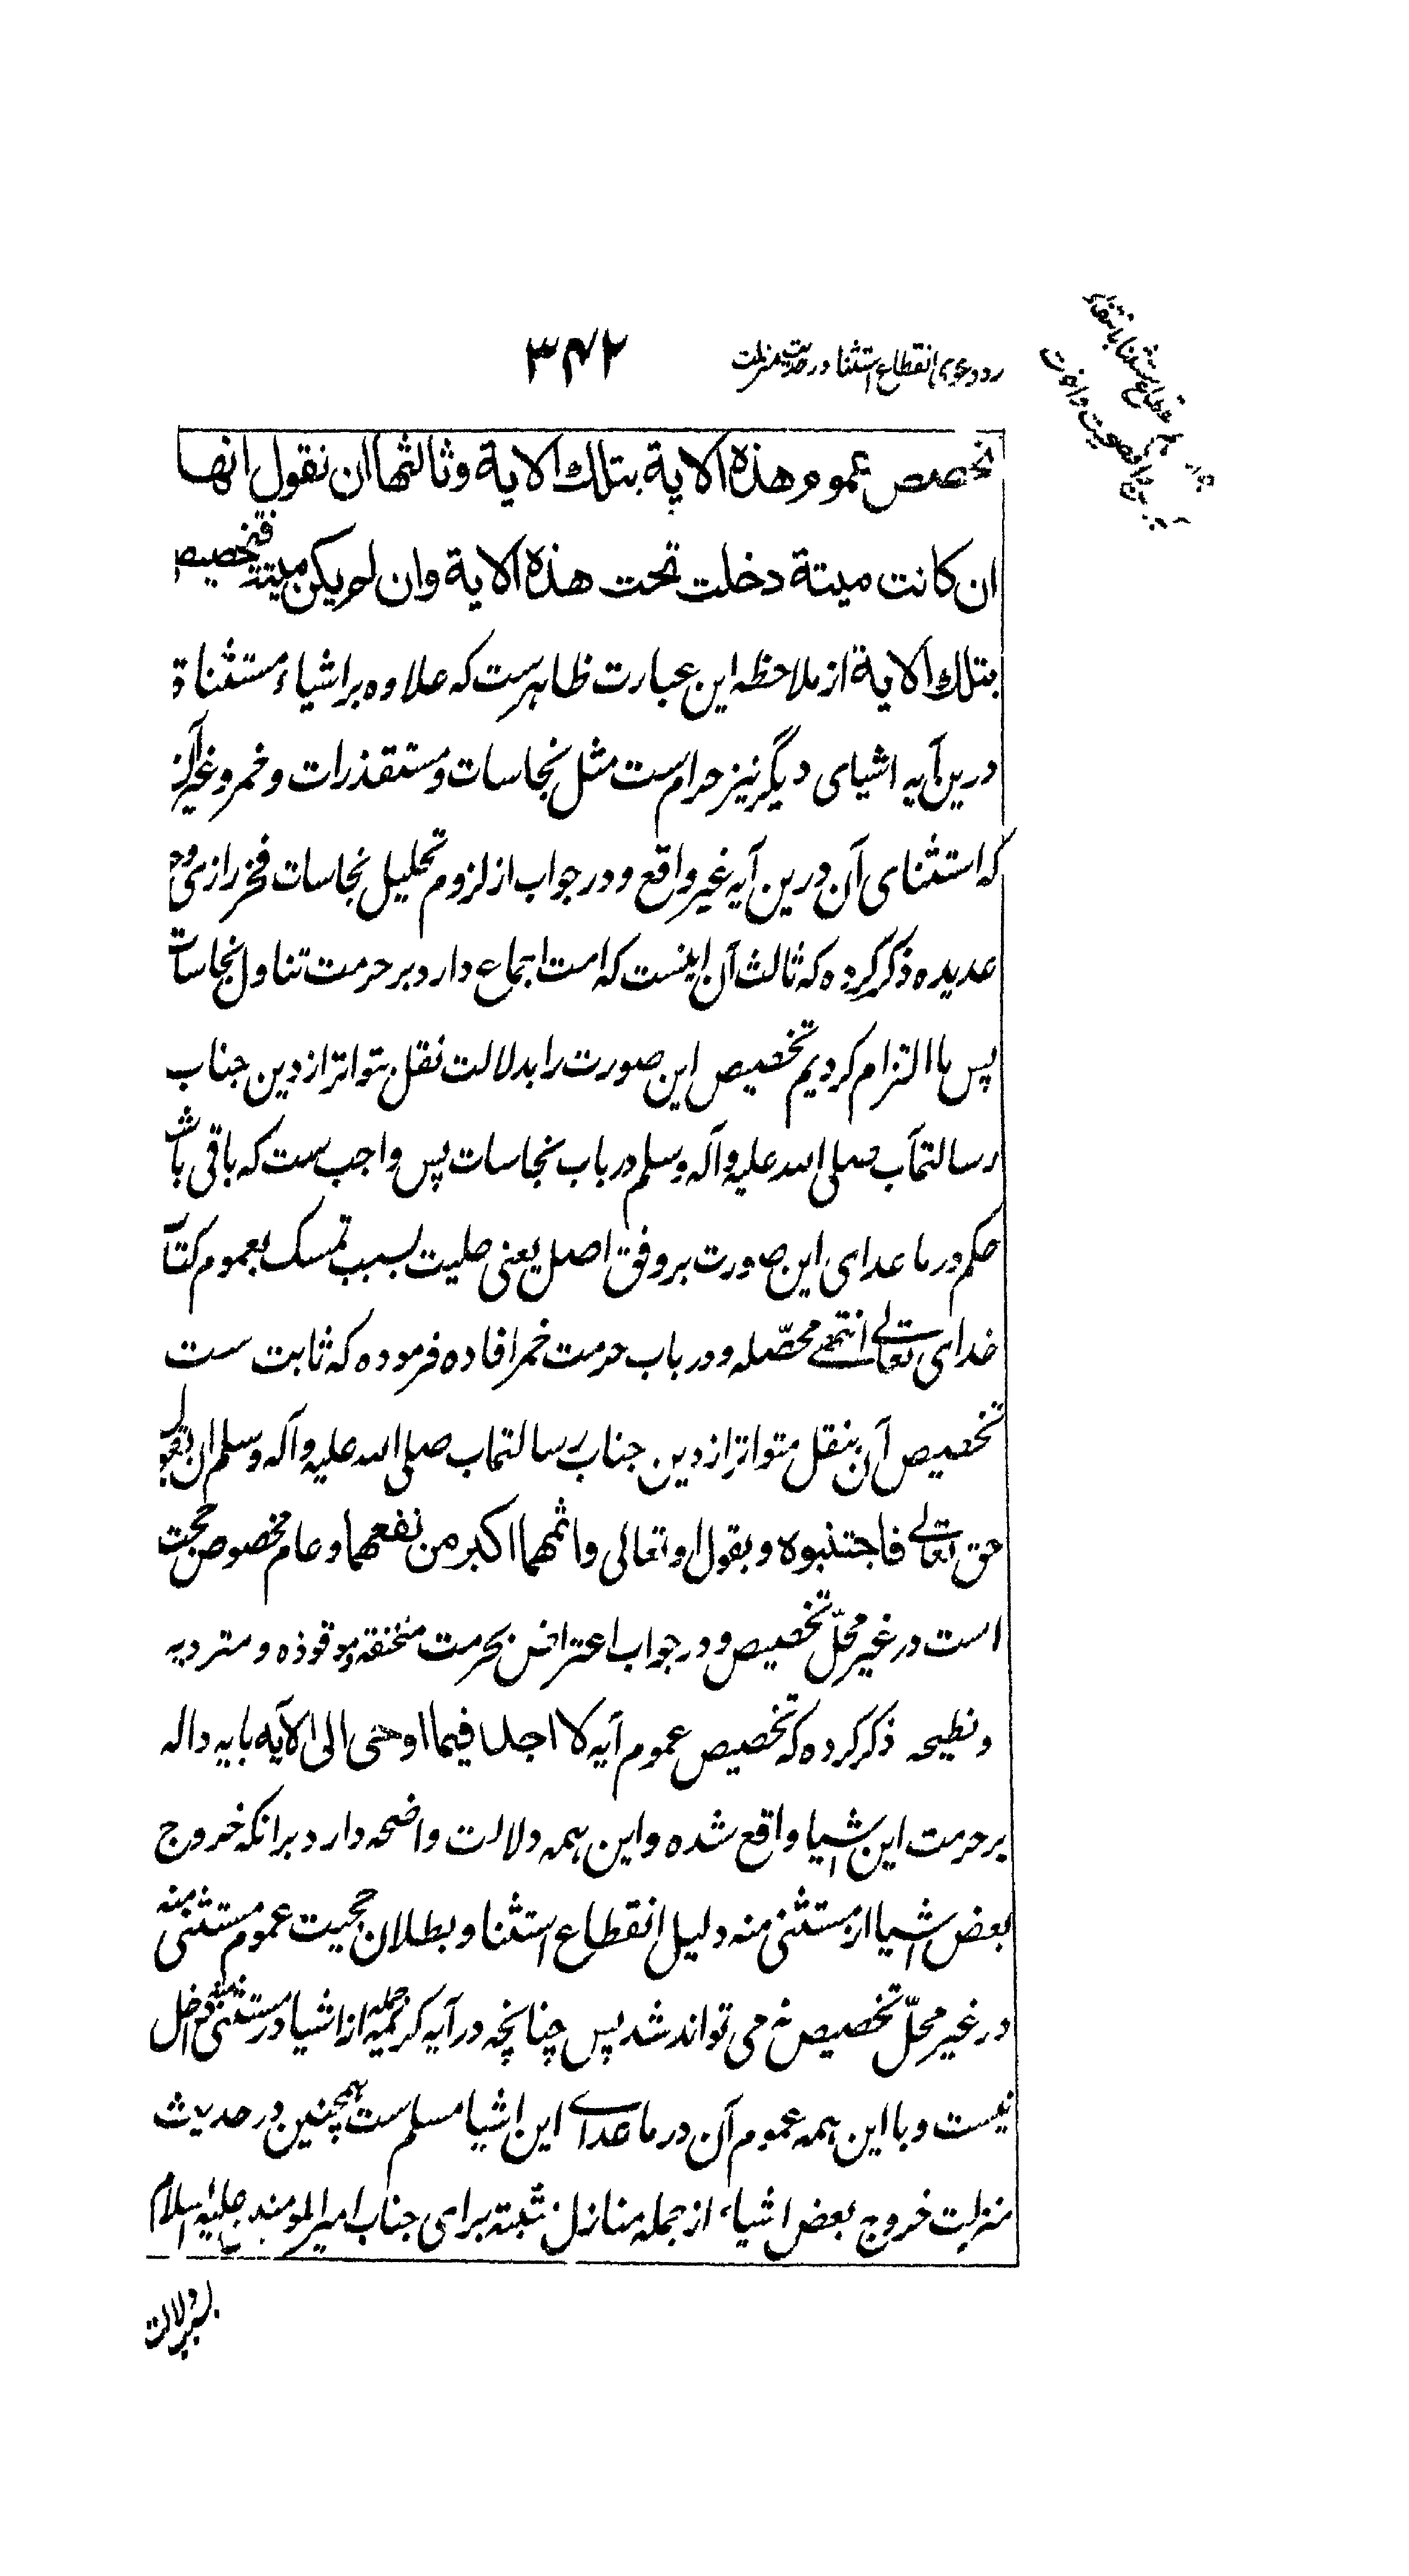 رد دعوی انقطاع استثنا در حدیث منزلت
۳۴۲
نخصص عموم هذه الاية بتلك الاية وثالثها ان نقول انها
ان كانت ميتة دخلت تحت هذه الاية وان لم يكن ميتة فنخصص
بتلك الاية از ملاحظه این عبارت ظاهرست که علاوه بر اشیاء مستثناة
درین آیه اشیای دیگر نیز حرام ست مثل نجاسات و مستقذرات و خمر و غیر آن
که استثنای آن درین آیه غیر واقع و در جواب از لزوم تحلیل نجاسات فخر رازی وجوه
عدیده ذکر کرده که ثالث آن اینست که امت اجماع دارد بر حرمت تناول نجاسات
پس ما التزام کردیم تخصیص این صورت را بدلالت نقل متواتر از دین جناب
رسالتمآب صلی الله علیه وآله وسلم در باب نجاسات پس واجب ست که باقی باشد
حکم در ما عدای این صورت بر وفق اصل یعنی حلیت بسبب تمسک بعموم کتاب
خدای تعالی انتهی محصّله و در باب حرمت خمر افاده فرموده که ثابت ست
تخصیص آن بنقل متواتر از دین جناب رسالتمآب صلی الله علیه وآله وسلم ان بقول
حق تعالی فاجتنبوه و بقول او تعالی واثمهما اكبر من نفعهما و عام مخصوص حجت
است در غیر محلّ تخصیص و در جواب اعتراض بحرمت منخنقه و موقوذه و متردیه
و نطیحه ذکر کرده که تخصیص عموم آیه لا اجد فيما اوحى الى الآیه بآیه داله
بر حرمت این اشیا واقع شده و این همه دلالت واضحه دارد برانکه خروج
بعض اشیا از مستثنی منه دلیل انقطاع استثنا و بطلان حجیت عموم مستثنی منه
در غیر محلّ تخصیص نمی تواند شد پس چنانچه در آیه کریمه جمله از اشیا در مستثنی منه داخل
نیست و با این همه عموم آن در ما عدای این اشیا مسلم ست همچنین در حدیث
منزلت خروج بعض اشیاء از جمله منازل مثبته برای جناب امیر المومنین علیه السلام